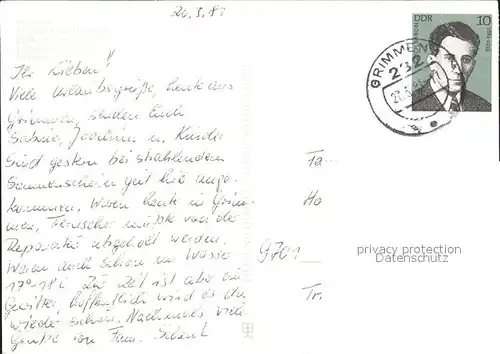 20.5.81
Ihr Lieben!
Viele Urlaubsgrüße, heute aus
Grimmen, senden Euch
Sabine, Joachim u. Kinder
Sind gestern bei strahlendem
Sonnenschein gut hier ange-
kommen. Waren heute in Grim-
men, Fernseher mußte von der
Reparatur abgeholt werden.
Waren auch schon im Wasser
17°-18°C Zur Zeit ist aber ein
Gewitter, hoffentlich wird es
wieder schön. Nochmals viele
Grüße von Fam.
DDR 10
GRIMMEN
232
Fa...
Ho
9701
Tr.
privacy protection
watermark